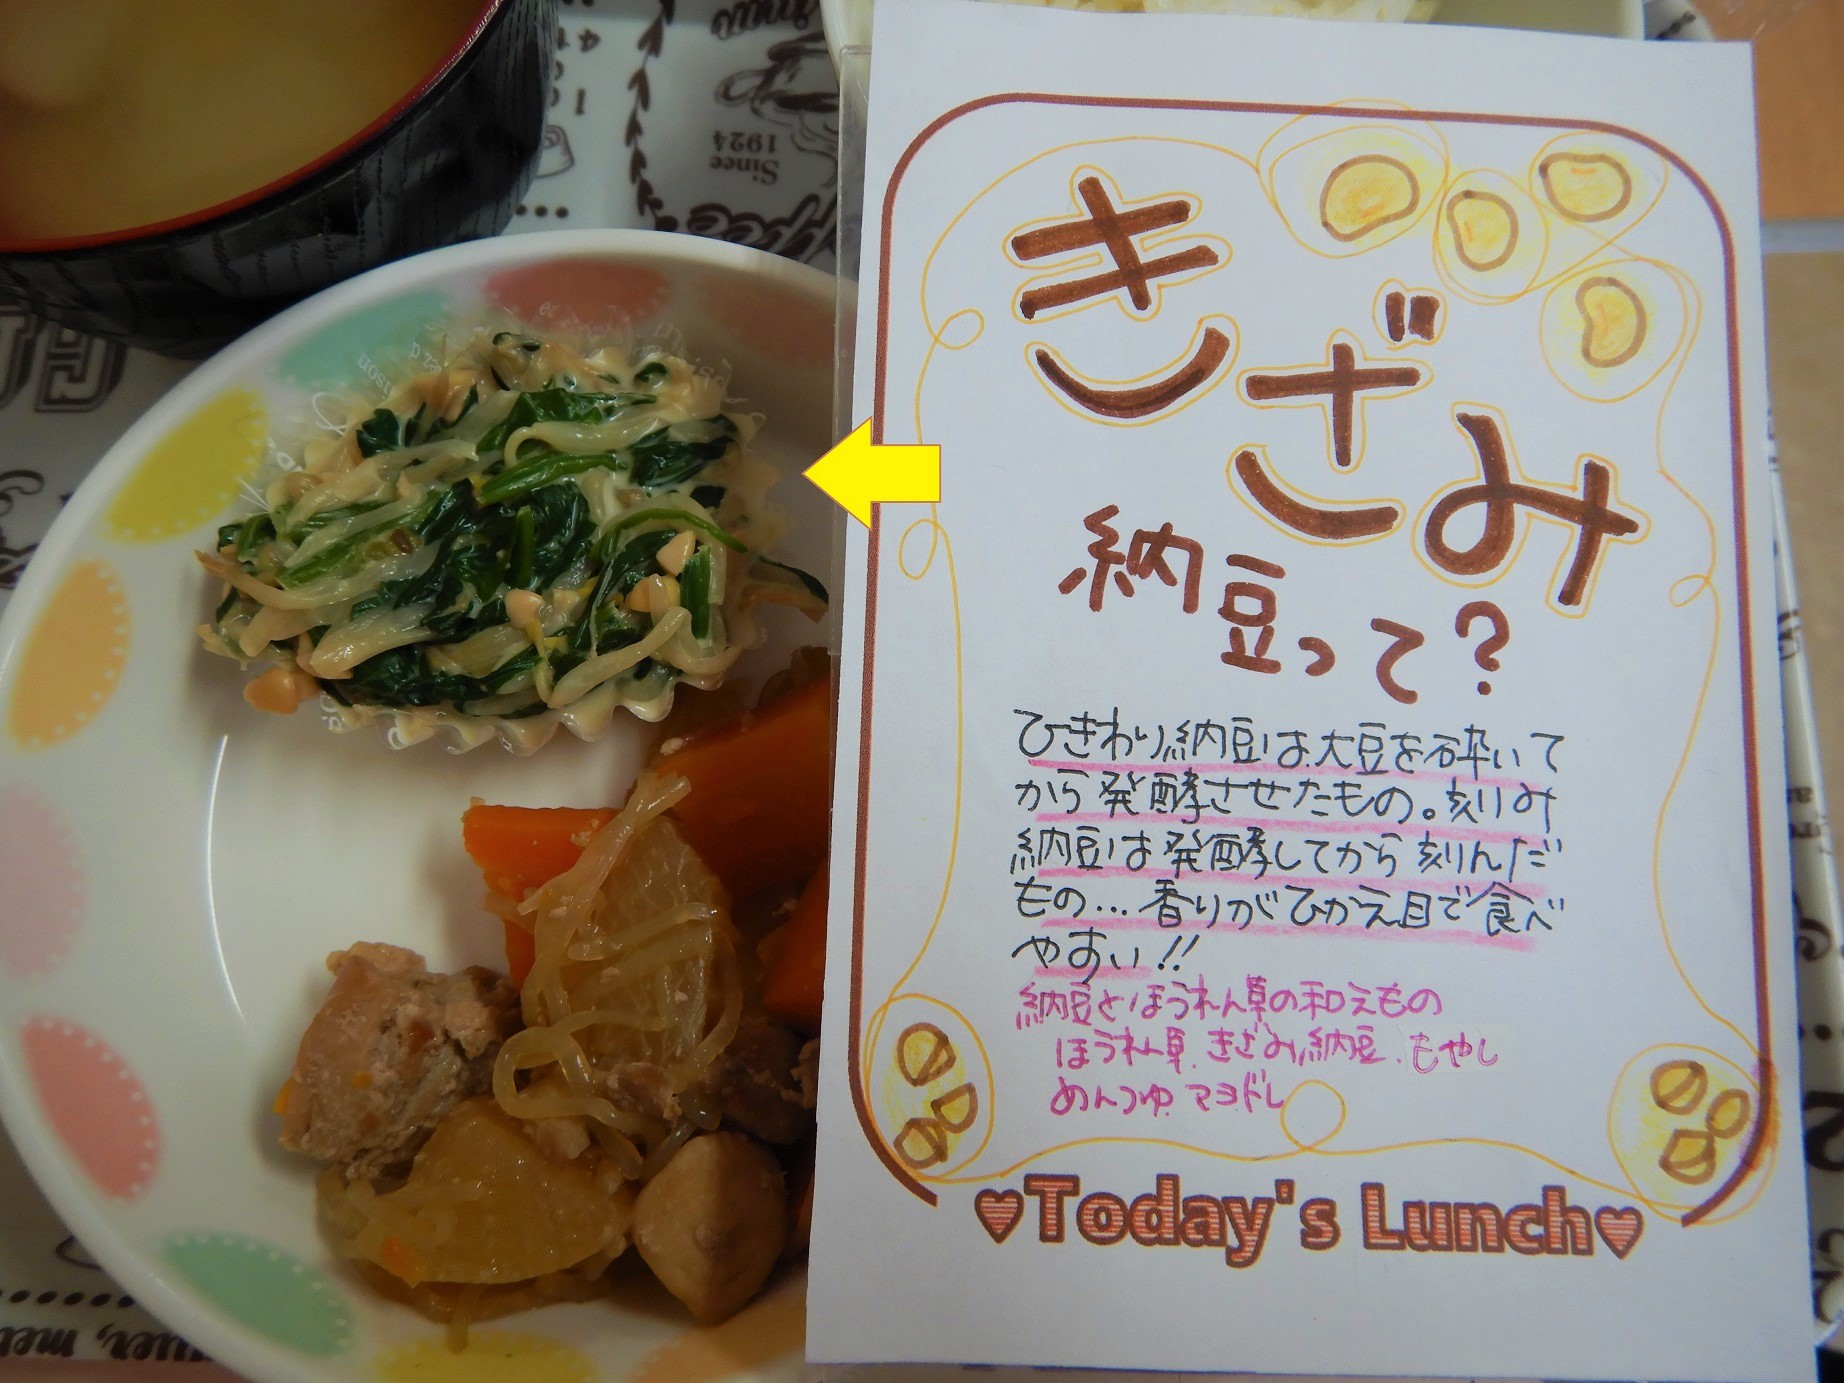 きざみ
納豆って?
ひきわり納豆は大豆を砕いて
から発酵させたもの。刻み
納豆は発酵してから刻んだ
もの…香りがひかえ目で食べ
やすい!!
納豆とほうれん草の和えもの
ほうれん草、きざみ納豆、もやし
めんつゆ、マヨドレ
♥Today's Lunch♥
Since
1924